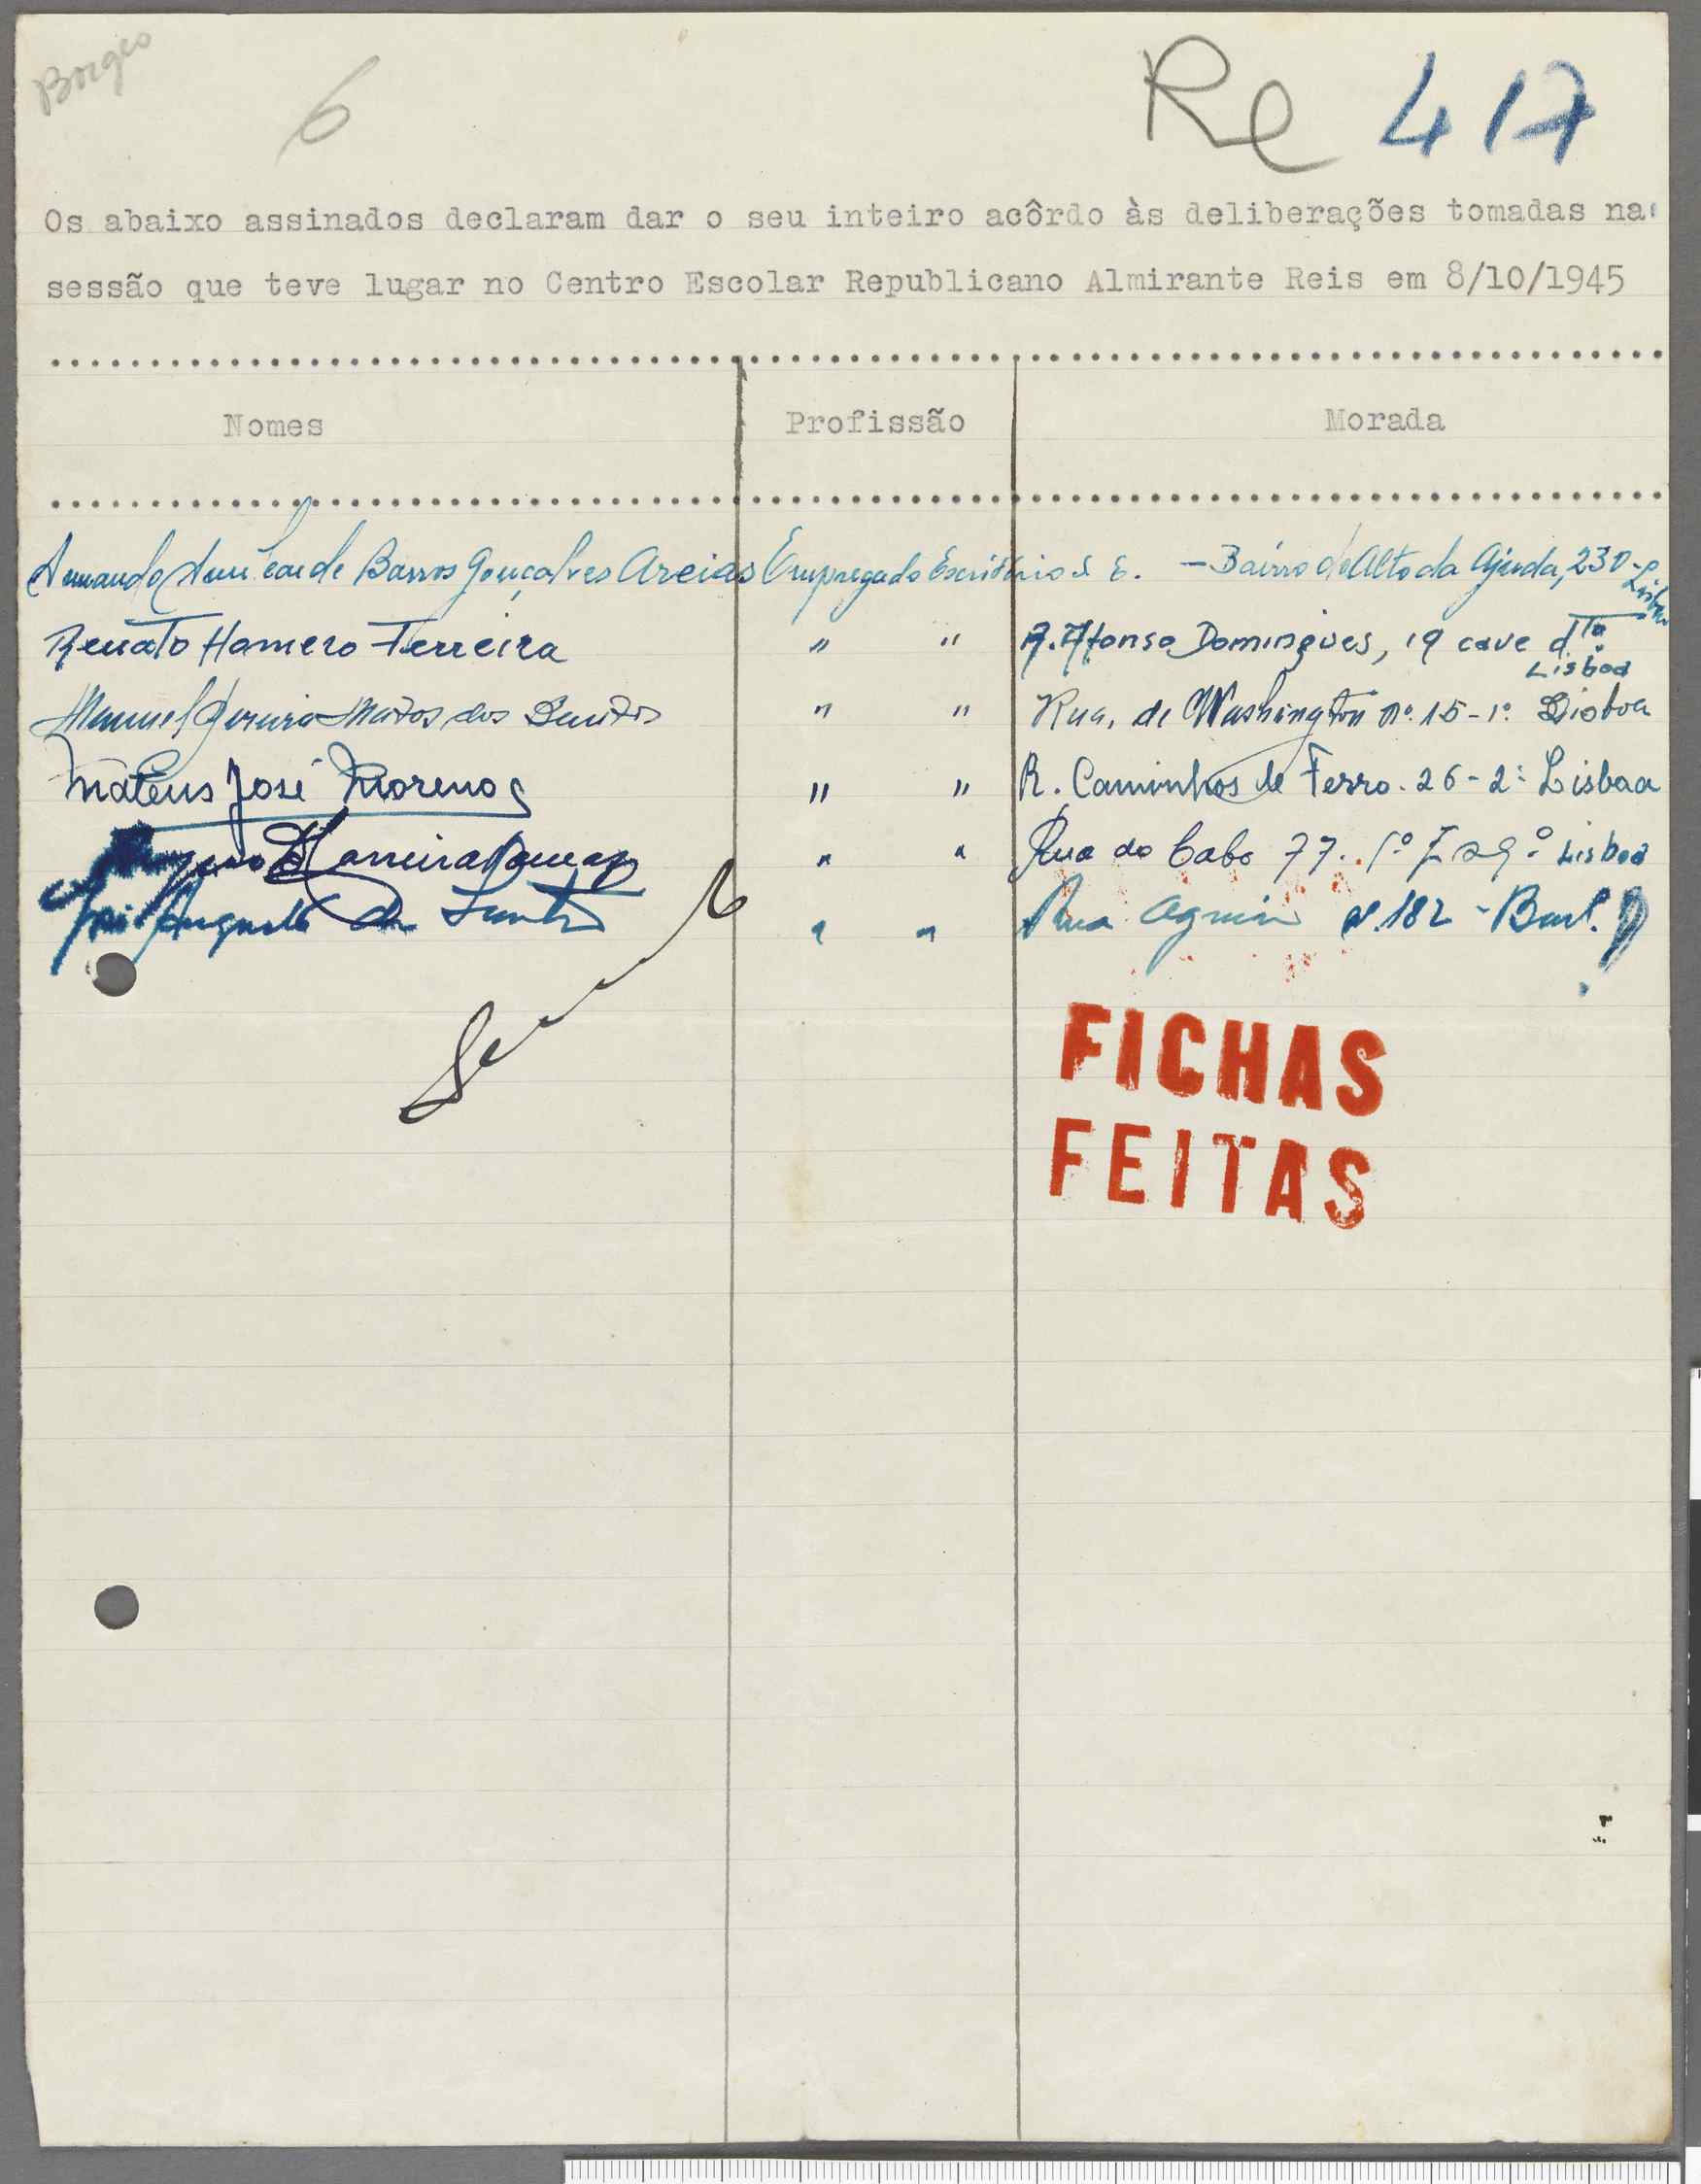 Borges
6
Re 417
Os abaixo assinados declaram dar o seu inteiro acôrdo às deliberações tomadas na
sessão que teve lugar no Centro Escolar Republicano Almirante Reis em 8/10/1945
Nomes Profissão Morada
de Barros Gonçalves Areias Empregado Escritório - Bairro do Alto da Ajuda, 230 - Lisboa
Renato Homero Ferreira " " R. Afonso Domingues, 19 cave dto. Lisboa
Manuel Pereira Matos dos Santos " " Rua, de Washington nº. 15-1º. Lisboa
Mateus José Moreno " " R. Caminhos de Ferro. 26-2º Lisboa
" " Rua do Cabo 77. Lisboa
José Augusto dos Santos " " Rua 182 -
FICHAS
FEITAS